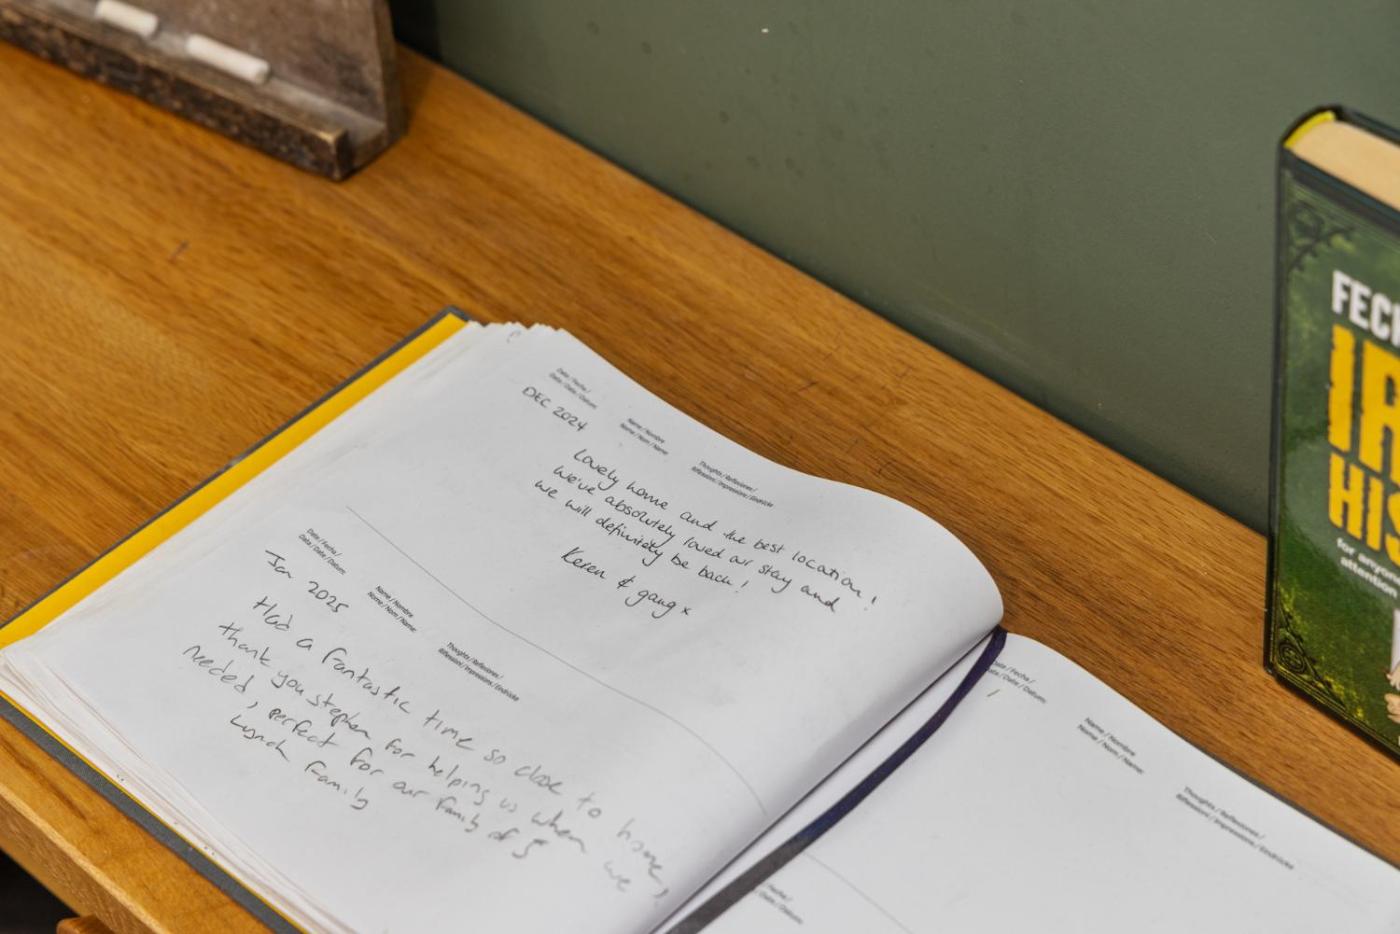 Date / Fecha /
Data / Date / Datum:
DEC 2024
Name / Nombre
Nome / Nom / Name:
Thoughts / Reflexiones /
Riflessioni / Impressions / Eindrücke
Lovely home and the best location!
We've absolutely loved our stay and
we will definitely be back!
Keren & gang x
Date / Fecha /
Data / Date / Datum:
Jan 2025
Name / Nombre
Nome / Nom / Name:
Thoughts / Reflexiones /
Riflessioni / Impressions / Eindrücke
Had a fantastic time so close to home,
thank you stephen for helping us when we
needed, perfect for our family of 5
Lynch family
Date / Fecha /
Data / Date / Datum:
Name / Nombre
Nome / Nom / Name:
Thoughts / Reflexiones /
Riflessioni / Impressions / Eindrücke
Fecha /
Date / Datum:
FECK
IR
HIS
for anyone
attention